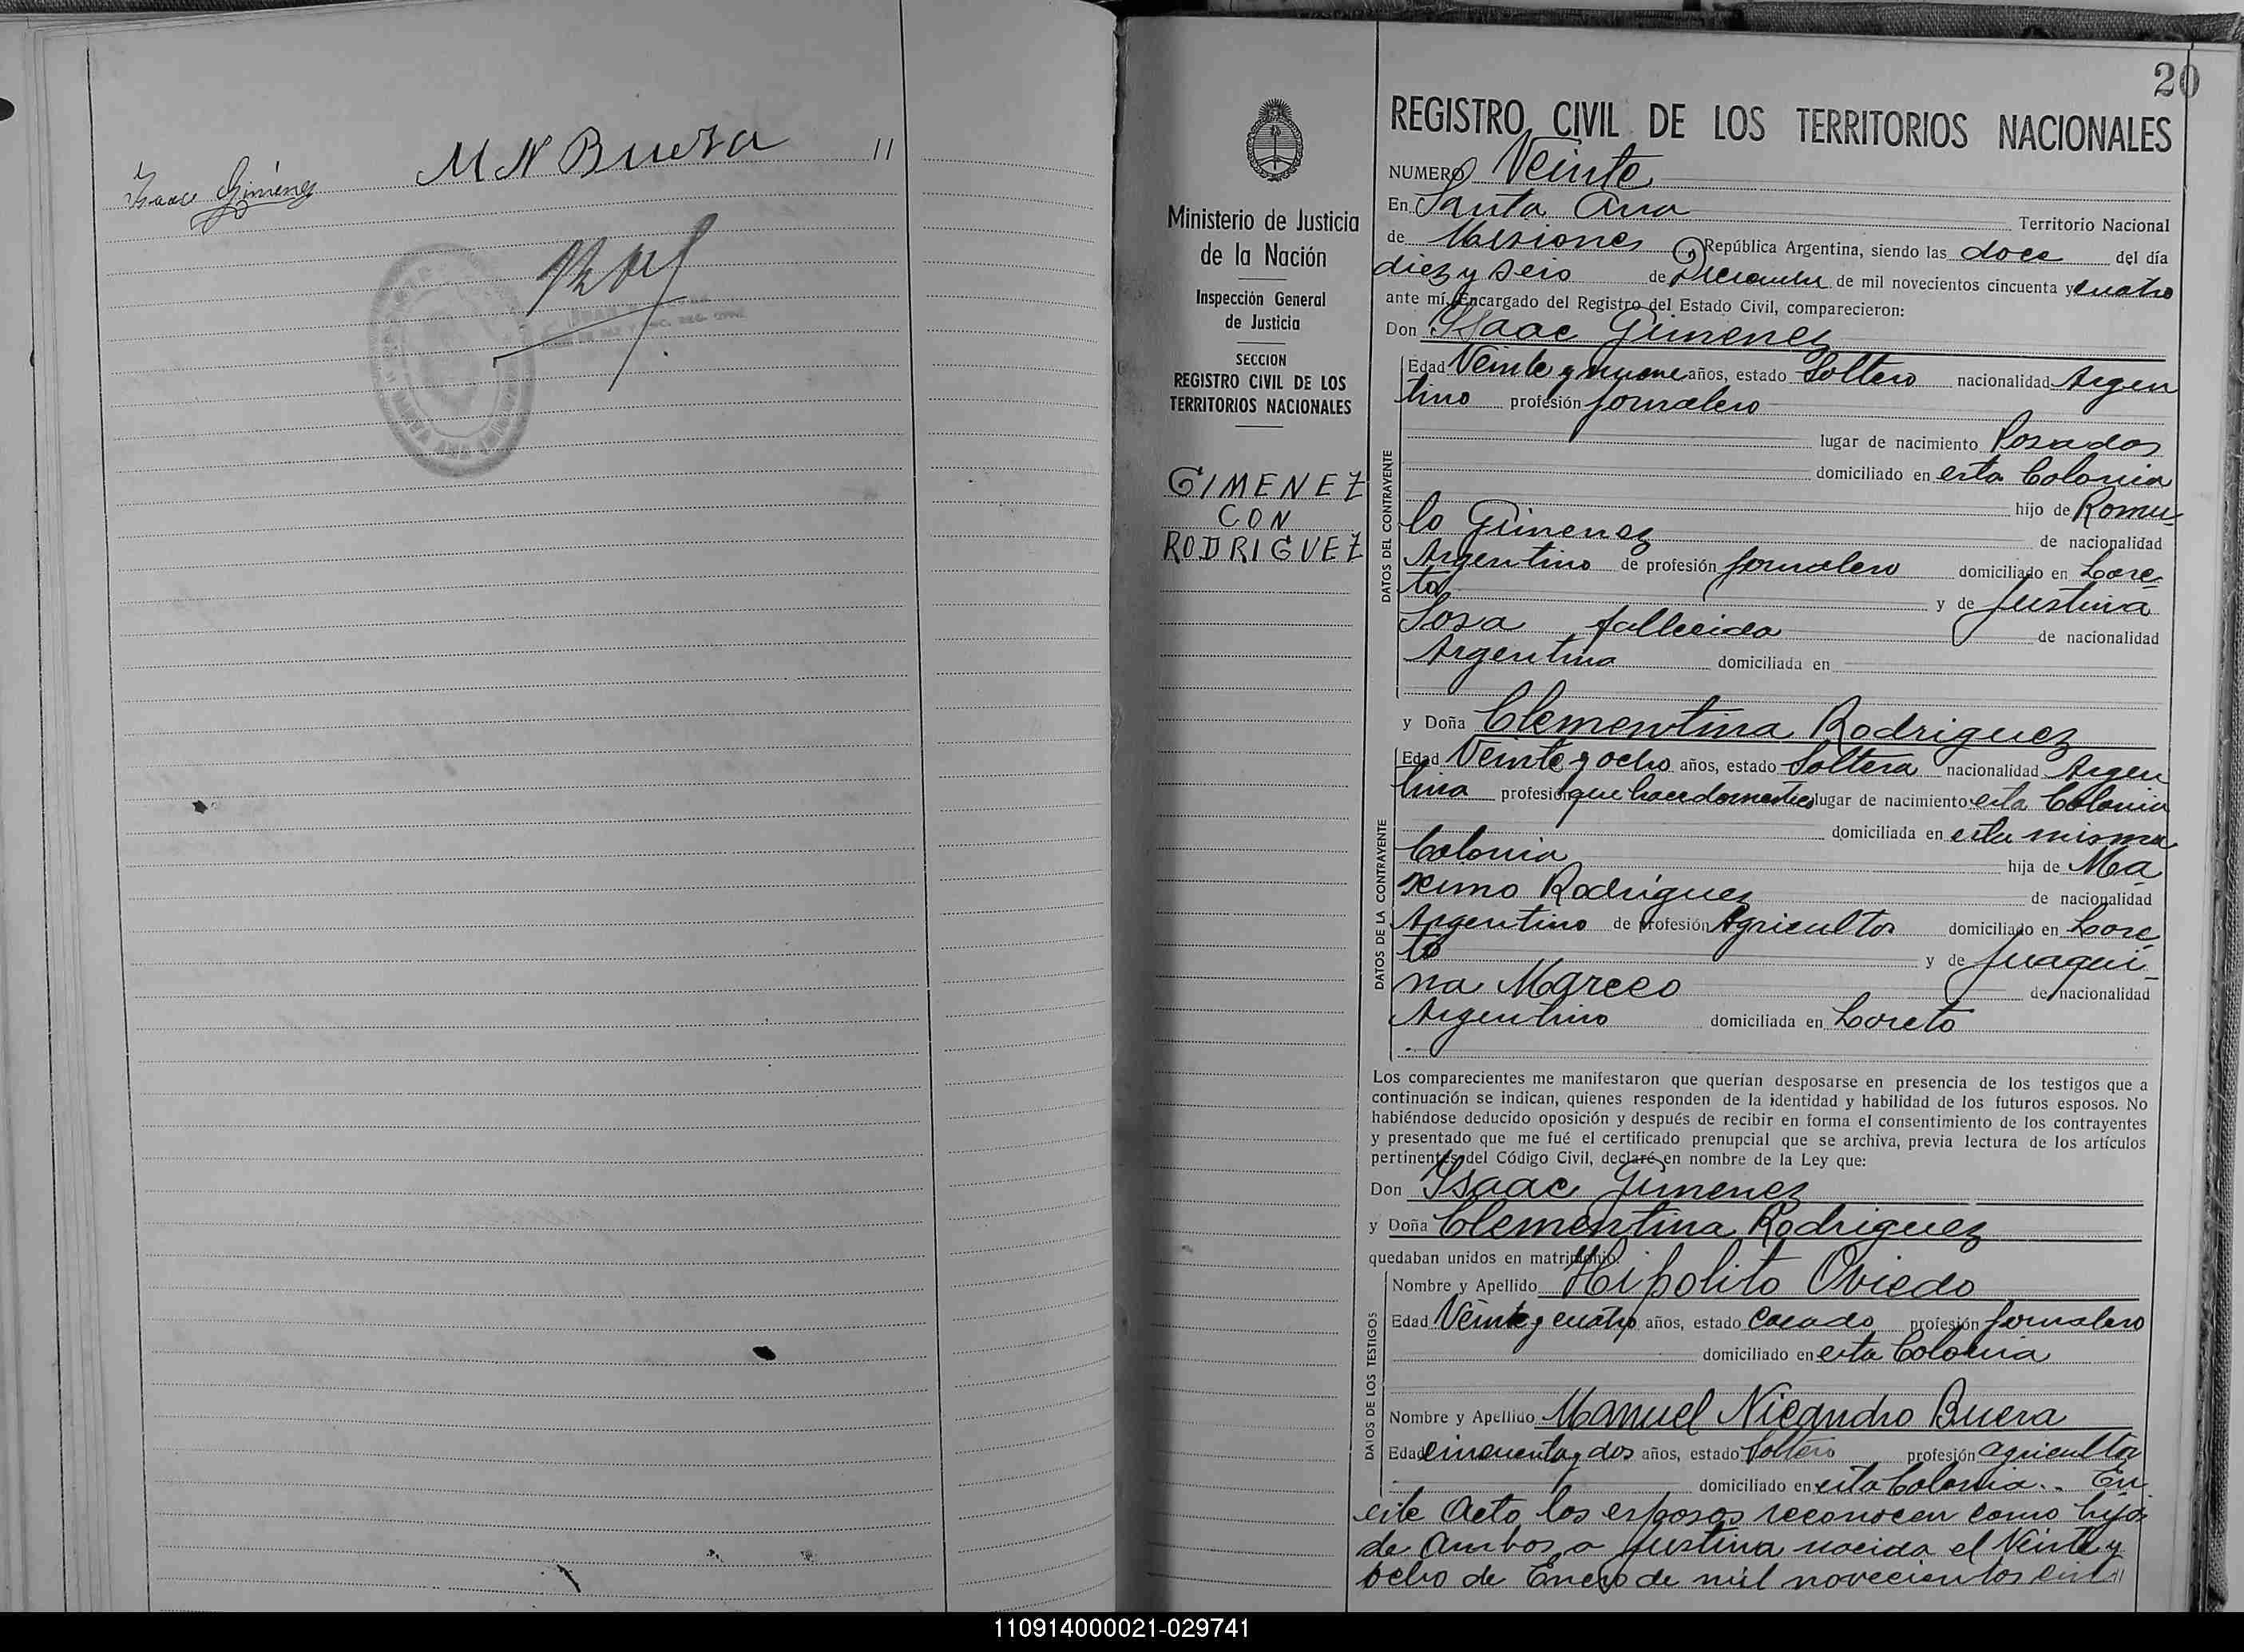 M N Buera //
Isaac Gimenez
20
REGISTRO CIVIL DE LOS TERRITORIOS NACIONALES
Ministerio de Justicia
de la Nación
Inspección General
de Justicia
SECCION
REGISTRO CIVIL DE LOS
TERRITORIOS NACIONALES
GIMENEZ
CON
RODRIGUEZ
NUMERO Veinte
En Santa Ana Territorio Nacional
de Misiones, República Argentina, siendo las doce del día
diez y seis de Diciembre de mil novecientos cincuenta y cuatro
ante mí, Encargado del Registro del Estado Civil, comparecieron:
Don Isaac Gimenez
DATOS DEL CONTRAYENTE
Edad Veinte y nueve años, estado Soltero nacionalidad Argen
tino profesión jornalero
lugar de nacimiento Posadas
domiciliado en esta Colonia
hijo de Romu-
lo Gimenez de nacionalidad
Argentino de profesión jornalero domiciliado en Lore-
to y de Justina
Sosa fallecida de nacionalidad
Argentina domiciliada en
y Doña Clementina Rodriguez
DATOS DE LA CONTRAYENTE
Edad Veinte y ocho años, estado Soltera nacionalidad Argen
tina profesión que hacer domestico lugar de nacimiento esta Colonia
domiciliada en esta misma
Colonia hija de Ma-
ximo Rodriguez de nacionalidad
Argentino de profesión Agricultor domiciliado en Lore-
to y de Juaqui-
na Mareco de nacionalidad
Argentina domiciliada en Loreto
Los comparecientes me manifestaron que querían desposarse en presencia de los testigos que a
continuación se indican, quienes responden de la identidad y habilidad de los futuros esposos. No
habiéndose deducido oposición y después de recibir en forma el consentimiento de los contrayentes
y presentado que me fué el certificado prenupcial que se archiva, previa lectura de los artículos
pertinentes del Código Civil, declaré en nombre de la Ley que:
Don Isaac Gimenez
y Doña Clementina Rodriguez
quedaban unidos en matrimonio.
DATOS DE LOS TESTIGOS
Nombre y Apellido Hipolito Oviedo
Edad Veinte y cuatro años, estado Casado profesión jornalero
domiciliado en esta Colonia
Nombre y Apellido Manuel Nicandro Buera
Edad cincuenta y dos años, estado Soltero profesión agricultor
domiciliado en esta Colonia.. En
este Acto los esposos reconocen como hija
de Ambos a Justina nacida el Veinte y
ocho de Enero de mil novecientos cin//
110914000021-029741